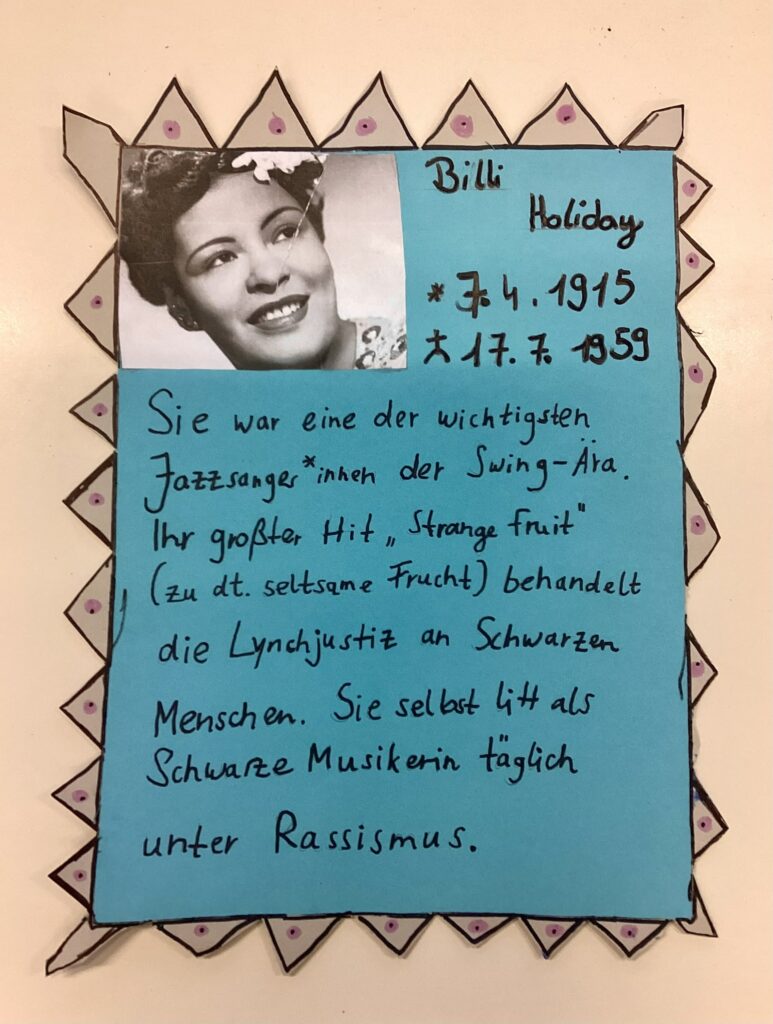 Billi
Holiday
* 7.4.1915
† 17.7.1959
Sie war eine der wichtigsten
Jazzsanger*innen der Swing-Ära.
Ihr großter Hit „Strange fruit"
(zu dt. seltsame Frucht) behandelt
die Lynchjustiz an Schwarzen
Menschen. Sie selbst litt als
Schwarze Musikerin täglich
unter Rassismus.